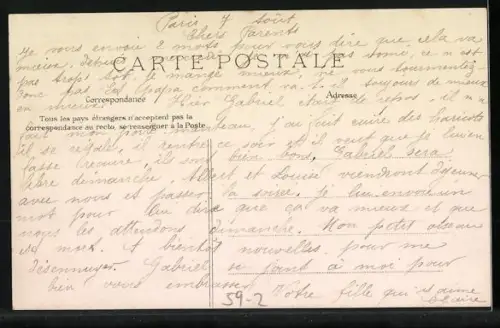 Paris 7 Août
Chers Parents
Je vous envoie 2 mots pour vous dire que cela va
mieux,
CARTE POSTALE
pas trop tôt, je mange mieux, ne vous tourmentez
donc pas. Et Papa comment va-t-il toujours de mieux
en mieux. Hier Gabriel était de repos, il m'a
Correspondance
Adresse
Tous les pays étrangers n'acceptent pas la
correspondance au recto, se renseigner à la Poste.
j'ai fait cuire des haricots
il se régale, il rentre ce soir et il veut que je lui en
fasse recuire, ils sont bien bons, Gabriel sera
libre dimanche. Albert et Louise viendront déjeuner
avec nous et passer la soirée, je lui envoie un
mot pour lui dire que ça va mieux et que
nous les attendons dimanche. Mon petit oiseau
est mort. A bientôt nouvelles pour me
désennuyer. Gabriel se joint à moi pour
bien vous embrasser. Votre fille qui vs aime
59-2